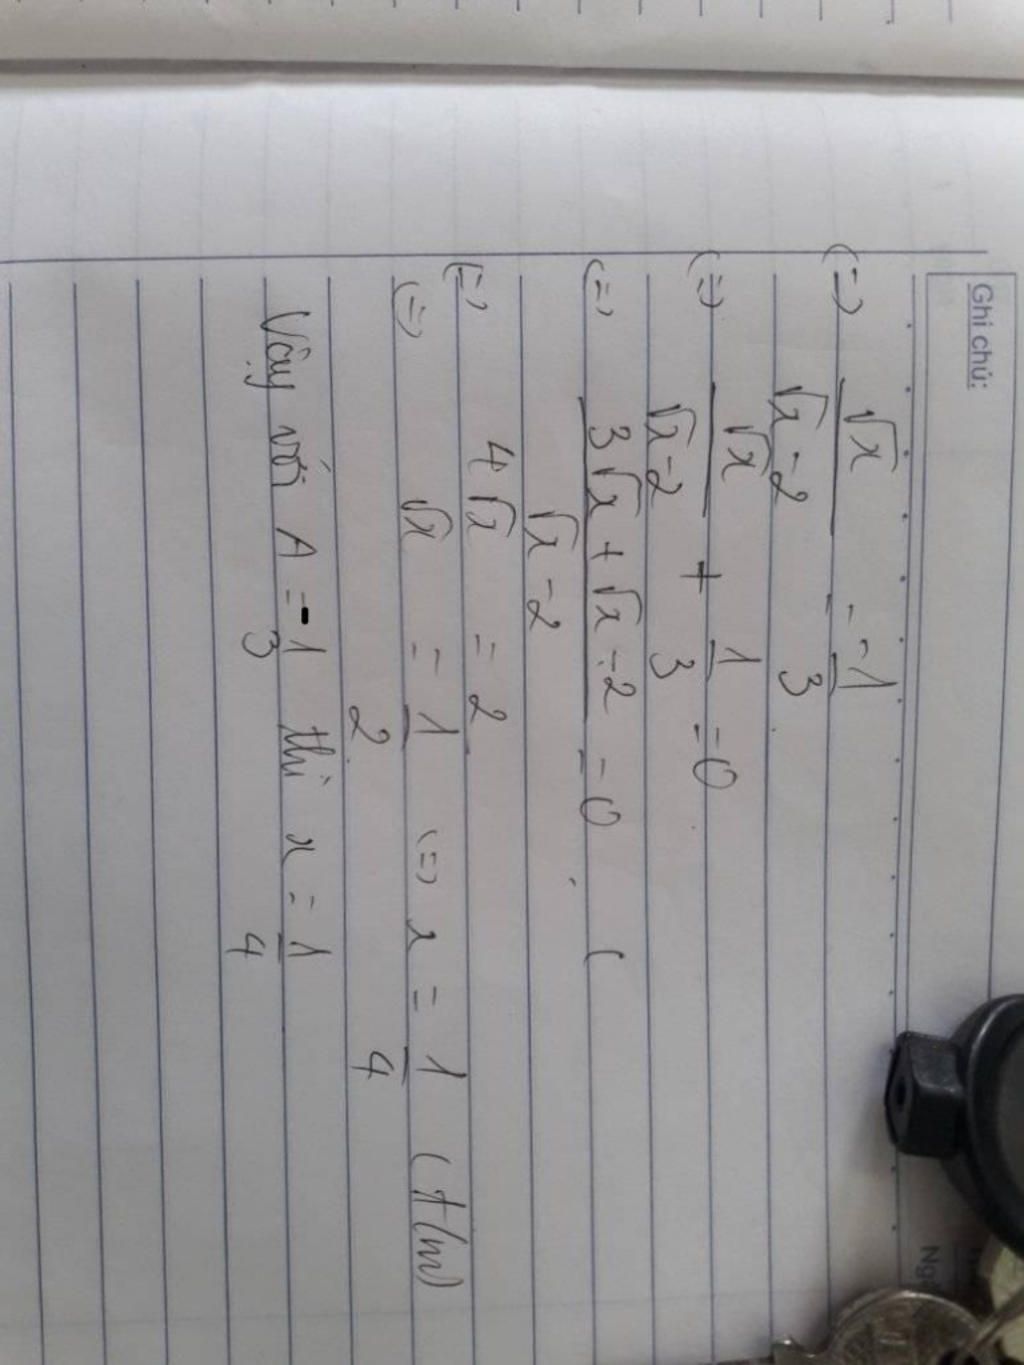 Ghi chú:
(=) √x / √x - 2 = -1 / 3
(=) √x / √x - 2 + 1 / 3 = 0
(=) 3√x + √x - 2 / √x - 2 = 0
(=) 4√x = 2
(=) √x = 1 / 2 (=) x = 1 / 4 (t/m)
Vậy với A = -1 / 3 thì x = 1 / 4